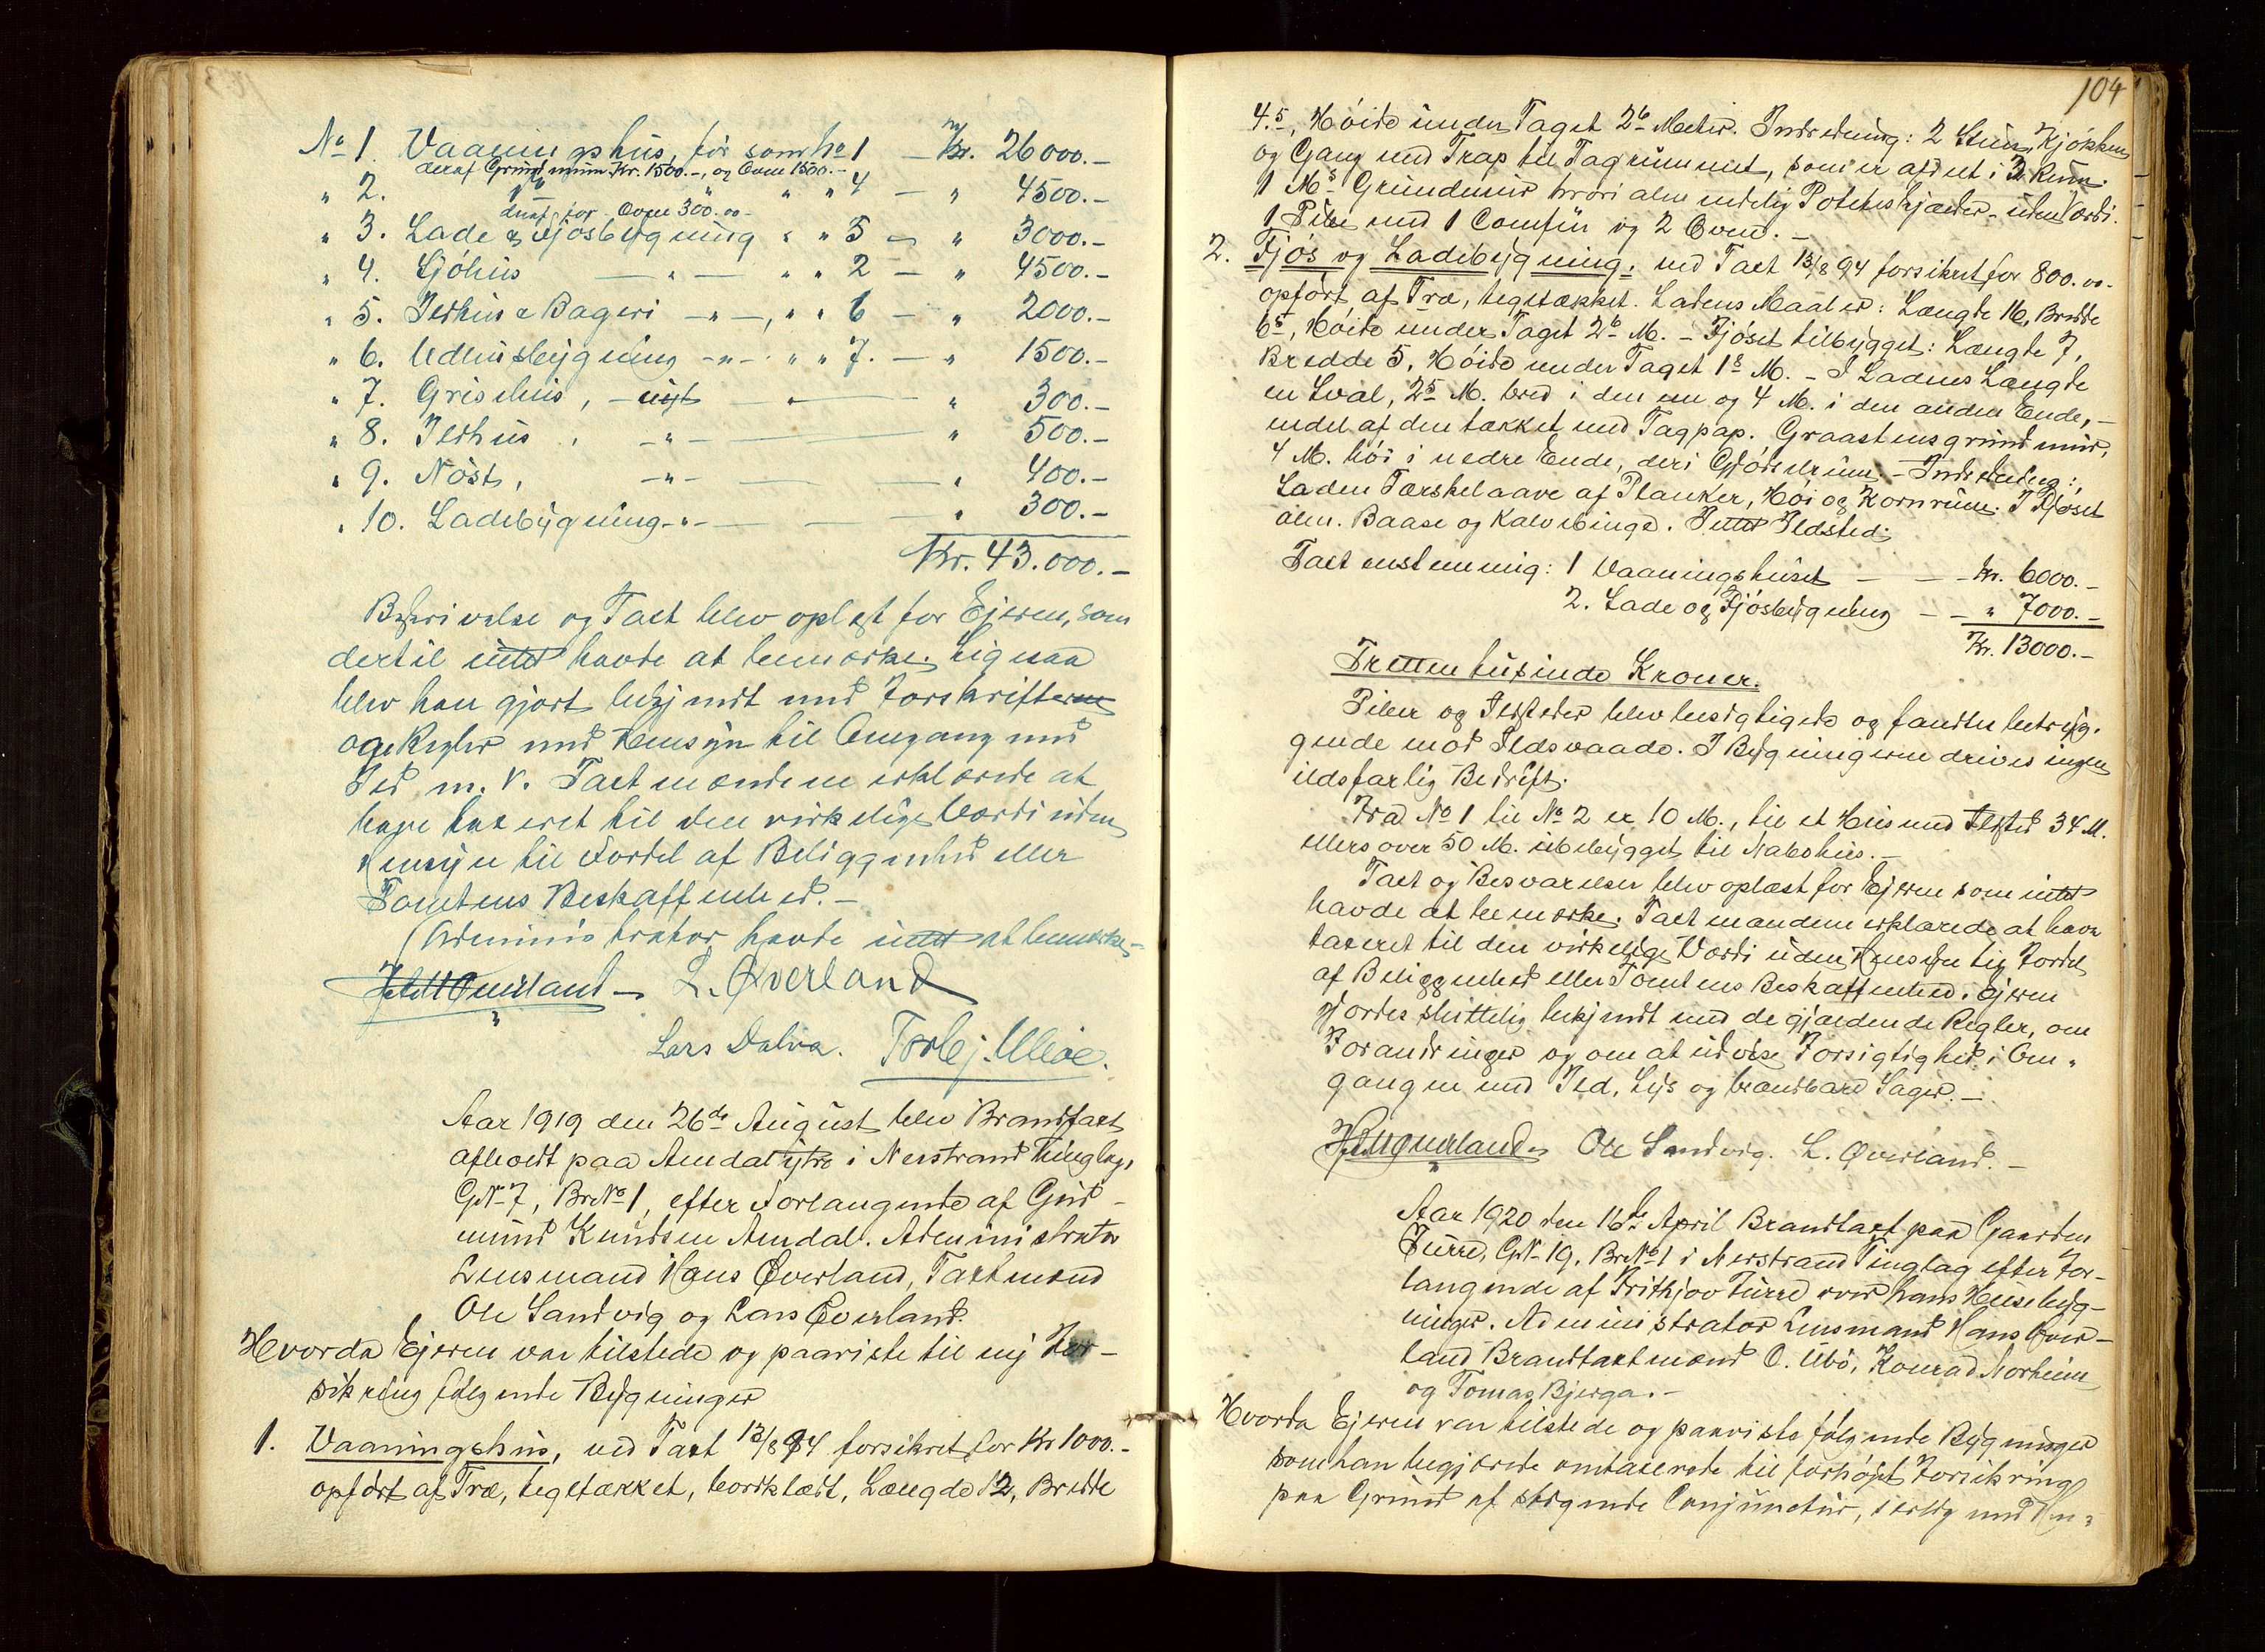 No 1. Vaaningshus, før som No 1 — Kr. 26000.-
deraf Grundmuren Kr. 1500.-, og Ovne 1500.-
" 2. " " 4 — " 4500.-
deraf for Ovne 300.oo-
" 3. Lade & Fjøsbygning " " 5 — " 3000.-
" 4. Sjøhus — " — " " 2 — " 4500.-
" 5. Ildhus & Bageri — " —, " " 6 — " 2000.-
" 6. Udhusbygning -"- " " 7. — " 1500.-
" 7. Grisehus, - nyt — " — " 300.-
" 8. Ildhus, -"- — " 500.-
" 9. Nøst, -"- — " 400.-
" 10. Ladebygning -"- — " 300.-
Kr. 43.000.-
Beskrivelse og Taxt blev oplæst for Ejeren, som
dertil intet havde at bemærke. Ligesaa
blev han gjort bekjendt med Forskrifterne
og Regler med Hensyn til Omgang med
Ild m. v. Taxtmændene erklærede at
have taxeret til den virkelige Værdi uden
Hensyn til Fordel af Beliggenhed eller
Tomtens Beskaffenhed.-
Administrator havde intet at bemærke.-
L. Øverland
Lars Dalva. Torbj.
Aar 1919 den 26de August blev Brandtaxt
afholdt paa Amdal ytre i Nerstrand Thinglag,
GNo 7, BrNo 1, efter Forlangende af Gud-
mund Knudsen Amdal. Administrator
Lensmand Hans Øverland, Taxtmænd
Ole Sandvig og Lars Øverland.
Hvorda Ejeren var tilstede og paaviste til ny For-
sikring følgende Bygninger
1. Vaaningshus, ved Taxt 13/8 94 forsikret for Kr 1000.-
opført af Træ, tegltækket, bordklædt, Længde 12, Bredde
104
4.5, Høide under Taget 26 Meter. Indredning: 2 Stuer, Kjøkken
og Gang med Trap til Tagrummet, som er afdelt i 2 Rum.
1 M8 Grundmur hvori alm indelig Poteteskjælder - uden Værdi.
1 Pibe med 1 Comfur og 2 Ovne.-
2. Fjøs og Ladebygning, ved Taxt 13/8 94 forsikret for 800.oo-
opført af Træ, tegltækket. Ladens Maal er: Længde 16, Bredde
65, Høide under Taget 26 M. - Fjøset tilbygget: Længde 7,
Bredde 5, Høide under Taget 18 M. - I Ladens Længde
en Sval, 25 M. bred i den ene og 4 M. i den anden Ende, -
endel af den tækket med Tagpap. Graastensgrundmur,
4 M. høi i nedre Ende, deri Gjødselrum. - Indredning:
Laden Tærskelaave af Planker, Høi og Kornrum. I Fjøset
alm. Baase og Kalvebinge. Intet Ildsted.
Taxt enstemmig: 1 Vaaningshuset — — Kr. 6000.-
2. Lade og Fjøsbygning — — " 7000.-
Kr. 13000.-
Tretten tusinde Kroner.
Piber og Ildsteder blev besigtigede og fandtes betryg-
gende mod Ildsvaade. I Bygningerne drives ingen
ildsfarlig Bedrift.
Fra No 1 til No 2 er 10 M., til et Hus med Ildsted 34 M.
ellers over 50 M. ubebygget til Nabohus.-
Taxt og Besvarelser blev oplæst for Ejeren som intet
havde at bemærke. Taxtmændene erklærede at have
taxeret til den virkelige Værdi uden Hensyn til Fordel
af Beliggenhed eller Tomtens Beskaffenhed. Ejeren
gjordes sluttelig bekjendt med de gjældende Regler, om
Forandringer og om at udvise Forsigtighed i Om-
gangen med Ild, Lys og brændbare Sager.-
Ole Sandvig. L. Øverland.-
Aar 1920 den 16de April Brandtaxt paa Gaarden
Furre, GNo 19, BrNo 1 i Nerstrand Tinglag efter For-
langende af Frithjov Furre over hans Husebyg-
ninger. Administrator Lensmand Hans Øver-
land Brandtaxtmænd O. Ubø, Konrad Norheim
og Tomas Bjerga.-
Hvorda Ejeren var tilstede og paaviste følgende Bygninger
som han begjærede omtaxerede til forhøjet Forsikring
paa Grund af stigende Conjunctur, særlig med Hen-